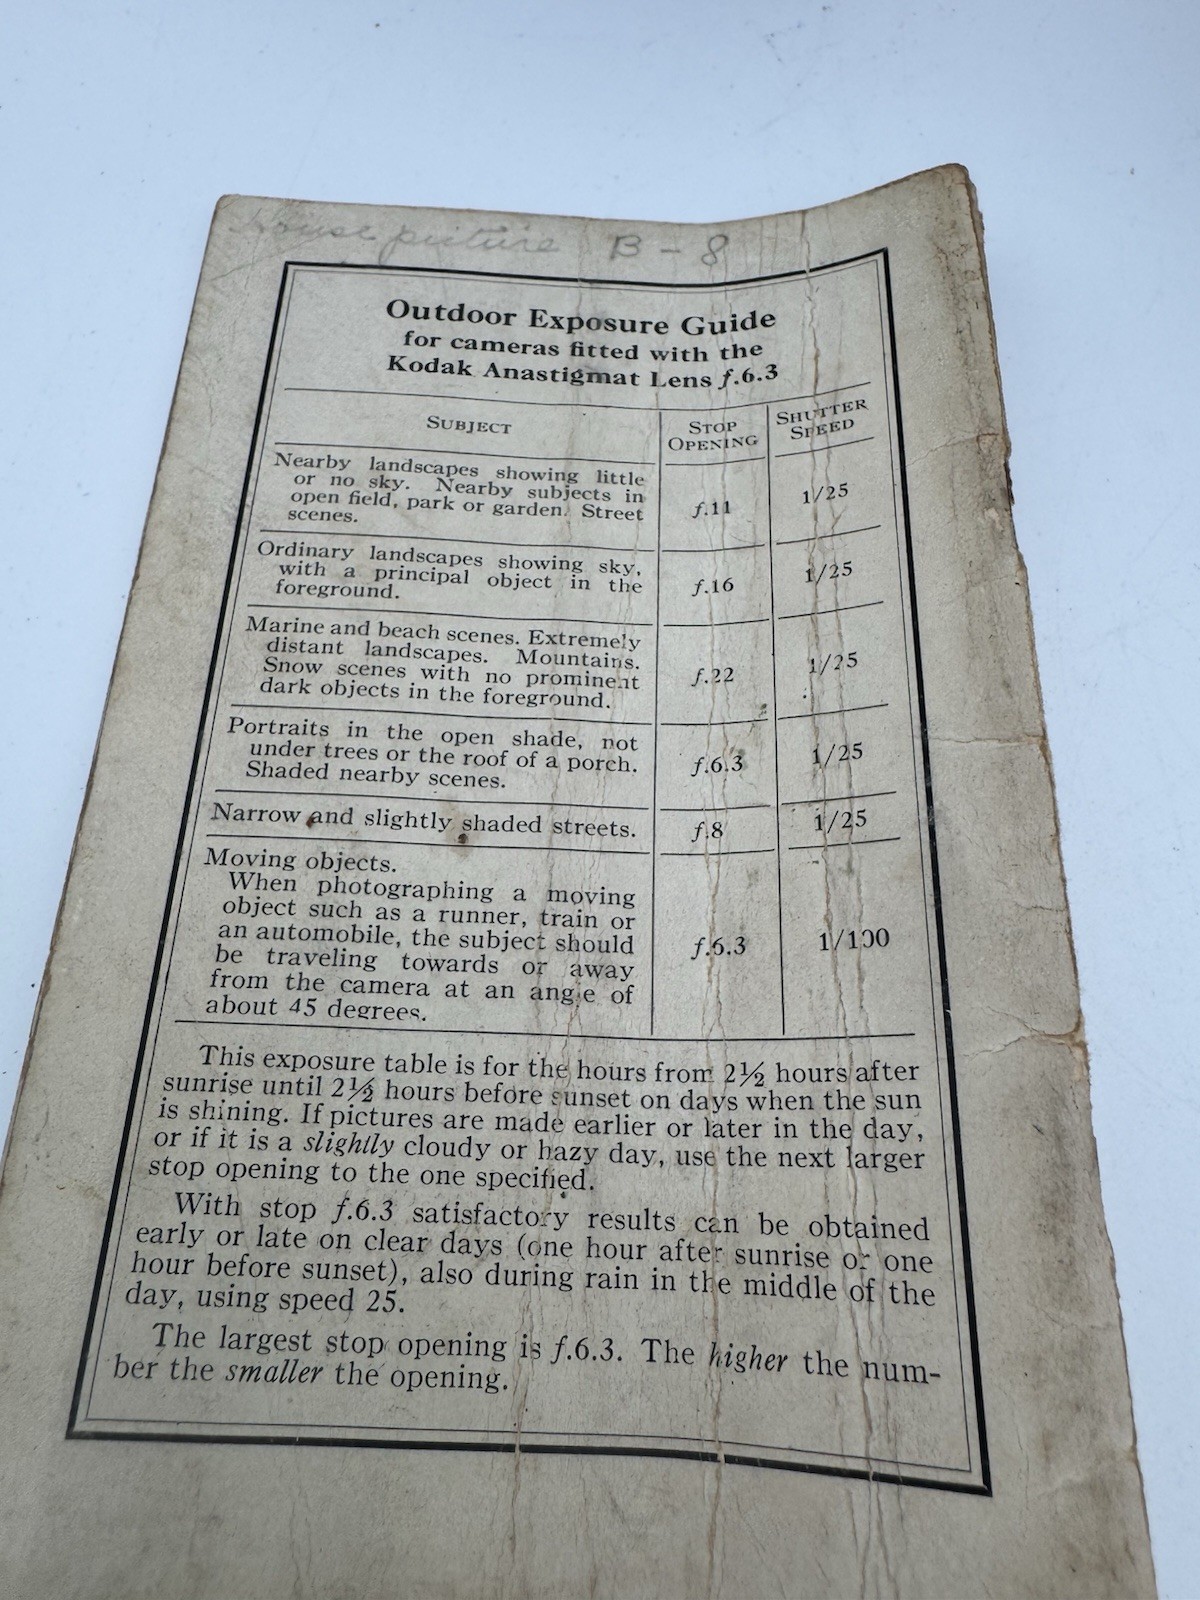 House picture B - 8
Outdoor Exposure Guide
for cameras fitted with the
Kodak Anastigmat Lens f.6.3
SUBJECT
STOP
OPENING
SHUTTER
SPEED
Nearby landscapes showing little
or no sky. Nearby subjects in
open field, park or garden. Street
scenes.
f.11
1/25
Ordinary landscapes showing sky,
with a principal object in the
foreground.
f.16
1/25
Marine and beach scenes. Extremely
distant landscapes. Mountains.
Snow scenes with no prominent
dark objects in the foreground.
f.22
1/25
Portraits in the open shade, not
under trees or the roof of a porch.
Shaded nearby scenes.
f.6.3
1/25
Narrow and slightly shaded streets.
f.8
1/25
Moving objects.
When photographing a moving
object such as a runner, train or
an automobile, the subject should
be traveling towards or away
from the camera at an angle of
about 45 degrees.
f.6.3
1/100
This exposure table is for the hours from 2½ hours after
sunrise until 2½ hours before sunset on days when the sun
is shining. If pictures are made earlier or later in the day,
or if it is a slightly cloudy or hazy day, use the next larger
stop opening to the one specified.
With stop f.6.3 satisfactory results can be obtained
early or late on clear days (one hour after sunrise or one
hour before sunset), also during rain in the middle of the
day, using speed 25.
The largest stop opening is f.6.3. The higher the num-
ber the smaller the opening.